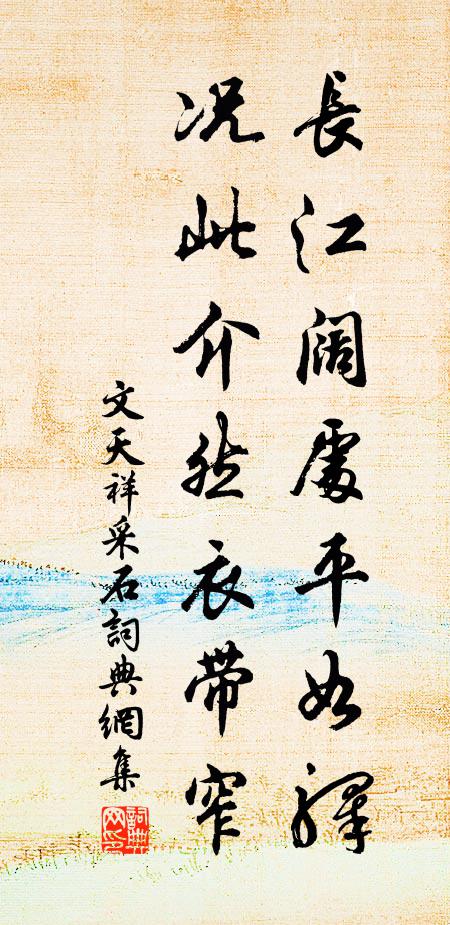 長江闊處平如驛
況此介然衣帶窄
文天祥采石詞典網集
詞典網印